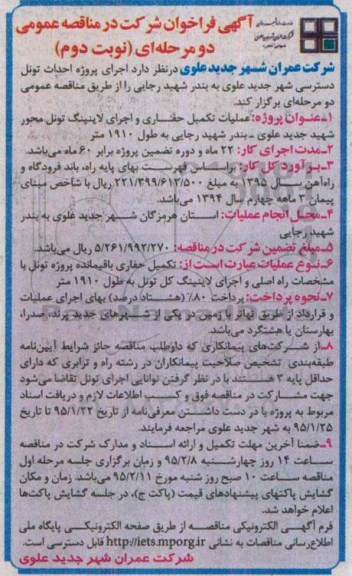 آگهی فراخوان شرکت در مناقصه عمومی
دو مرحله‌ای (نوبت دوم)
شرکت عمران شهر جدید علوی درنظر دارد اجرای پروژه احداث تونل
دسترسی شهر جدید علوی به بندر شهید رجایی را از طریق مناقصه عمومی
دو مرحله‌ای برگزار کند.
۱ـ عنوان پروژه: عملیات تکمیل حفاری و اجرای لاینینگ تونل محور
شهید جدید علوی ـ بندر شهید رجایی به طول ۱۹۱۰ متر
۲ـ مدت اجرای کار: ۲۲ ماه و دوره تضمین پروژه برابر ۶۰ ماه می‌باشد.
۳ـ برآورد کل کار: براساس فهرست بهای پایه راه، باند فرودگاه و
راه‌آهن سال ۱۳۹۵ به مبلغ ۲۲۱/۳۹۹/۶۱۳/۵۰۰ ریال با شاخص مبنای
پیمان ۳ ماهه چهارم سال ۱۳۹۴ می‌باشد.
۴ـ محل انجام عملیات: استان هرمزگان شهر جدید علوی به بندر
شهید رجایی
۵ـ مبلغ تضمین شرکت در مناقصه: ۵/۲۶۱/۹۹۲/۲۷۰ ریال می‌باشد.
۶ـ نوع عملیات عبارت است از: تکمیل حفاری باقیمانده پروژه تونل با
مشخصات راه اصلی و اجرای لاینینگ کل تونل به طول ۱۹۱۰ متر
۷ـ نحوه پرداخت: پرداخت ۸۰٪ (هشتاد درصد) بهای اجرای عملیات
و قرارداد از طریق تهاتر با زمین در یکی از شهرهای جدید پرند، صدرا،
بهارستان یا هشتگرد می‌باشد.
۸ـ از شرکت‌های پیمانکاری که داوطلب مناقصه حائز شرایط آیین‌نامه
طبقه‌بندی تشخیص صلاحیت پیمانکاران در رشته راه و ترابری که دارای
حداقل پایه ۳ هستند با در نظر گرفتن توانایی اجرای تونل تقاضا می‌شود
جهت مشارکت در مناقصه فوق و کسب اطلاعات لازم و دریافت اسناد
مربوط به پروژه با در دست داشتن معرفی‌نامه از تاریخ ۹۵/۱/۲۲ تا تاریخ
۹۵/۱/۲۵ به شهر جدید علوی مراجعه فرمایند.
۹ـ ضمنا آخرین مهلت تکمیل و ارائه اسناد و مدارک شرکت در مناقصه
ساعت ۱۴ روز چهارشنبه ۹۵/۲/۸ و زمان برگزاری جلسه مرحله اول
مناقصه ساعت ۱۰ صبح روز شنبه مورخ ۹۵/۲/۱۱ می‌باشد. زمان و مکان
گشایش پاکتهای پیشنهادهای قیمت (پاکت ج)، در جلسه گشایش پاکت‌ها
اعلام خواهد شد.
فرم آگهی الکترونیکی مناقصه از طریق صفحه الکترونیکی پایگاه ملی
اطلاع‌رسانی مناقصات به نشانی http://iets.mporg.ir قابل دسترسی است.
شرکت عمران شهر جدید علوی